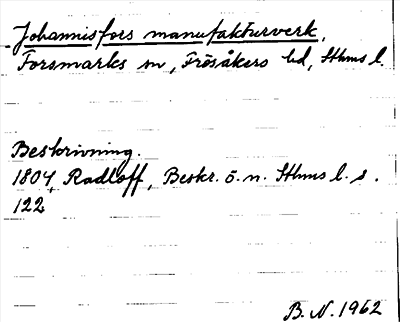 Johannisfors manufakturverk.
Forsmarks sn, Frösåkers hd, Sthms l.
Beskrivning.
1804, Radloff, Beskr. ö. n. Sthms l. s.
122
B. N. 1962